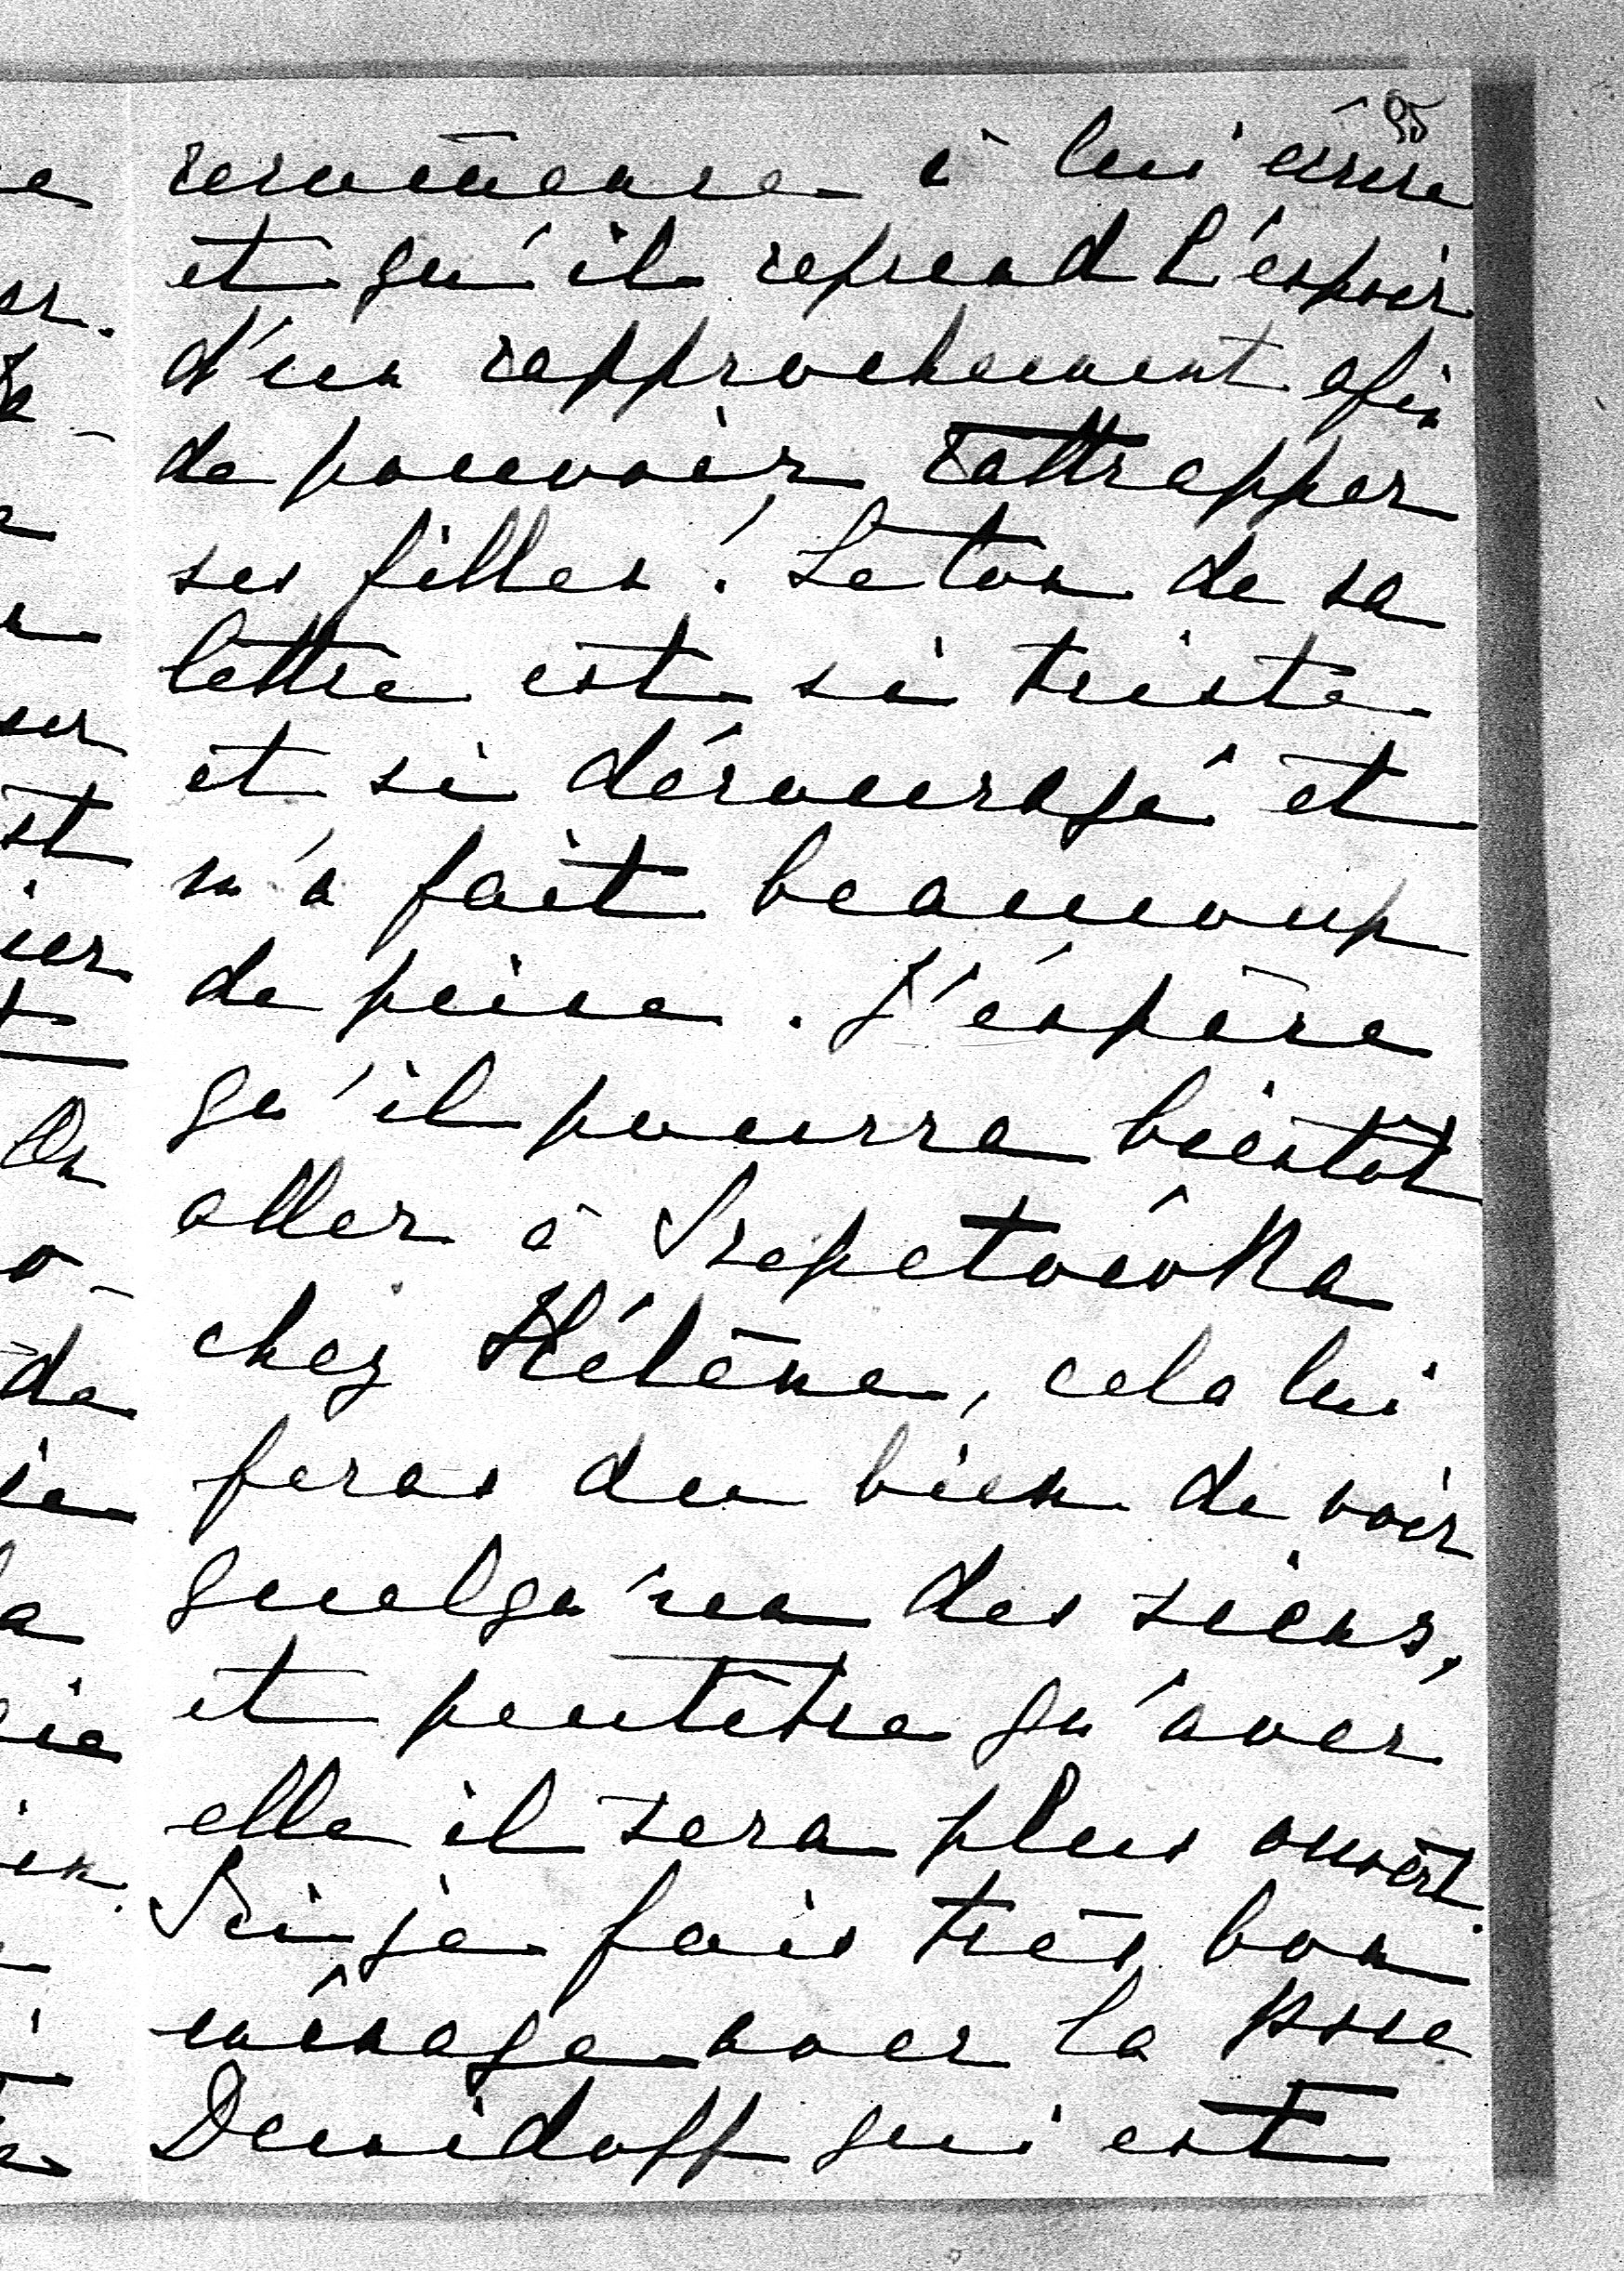 95
recommence à lui écrire
et qu'il reprend l'espoir
d'un rapprochement afin
de pouvoir rattrapper
ses filles! Le ton de sa
lettre est si triste
et si découragé et
m'a fait beaucoup
de peine. J'éspère
qu'il pourra bientôt
aller à Srepetovôka
chez Hélène, cela lui
feras du bien de voir
quelqu'un des siens,
et peutêtre qu'avec
elle il sera plus ouvert.
Ici je fais très bon
ménage avec la Psse
Demidoff qui est